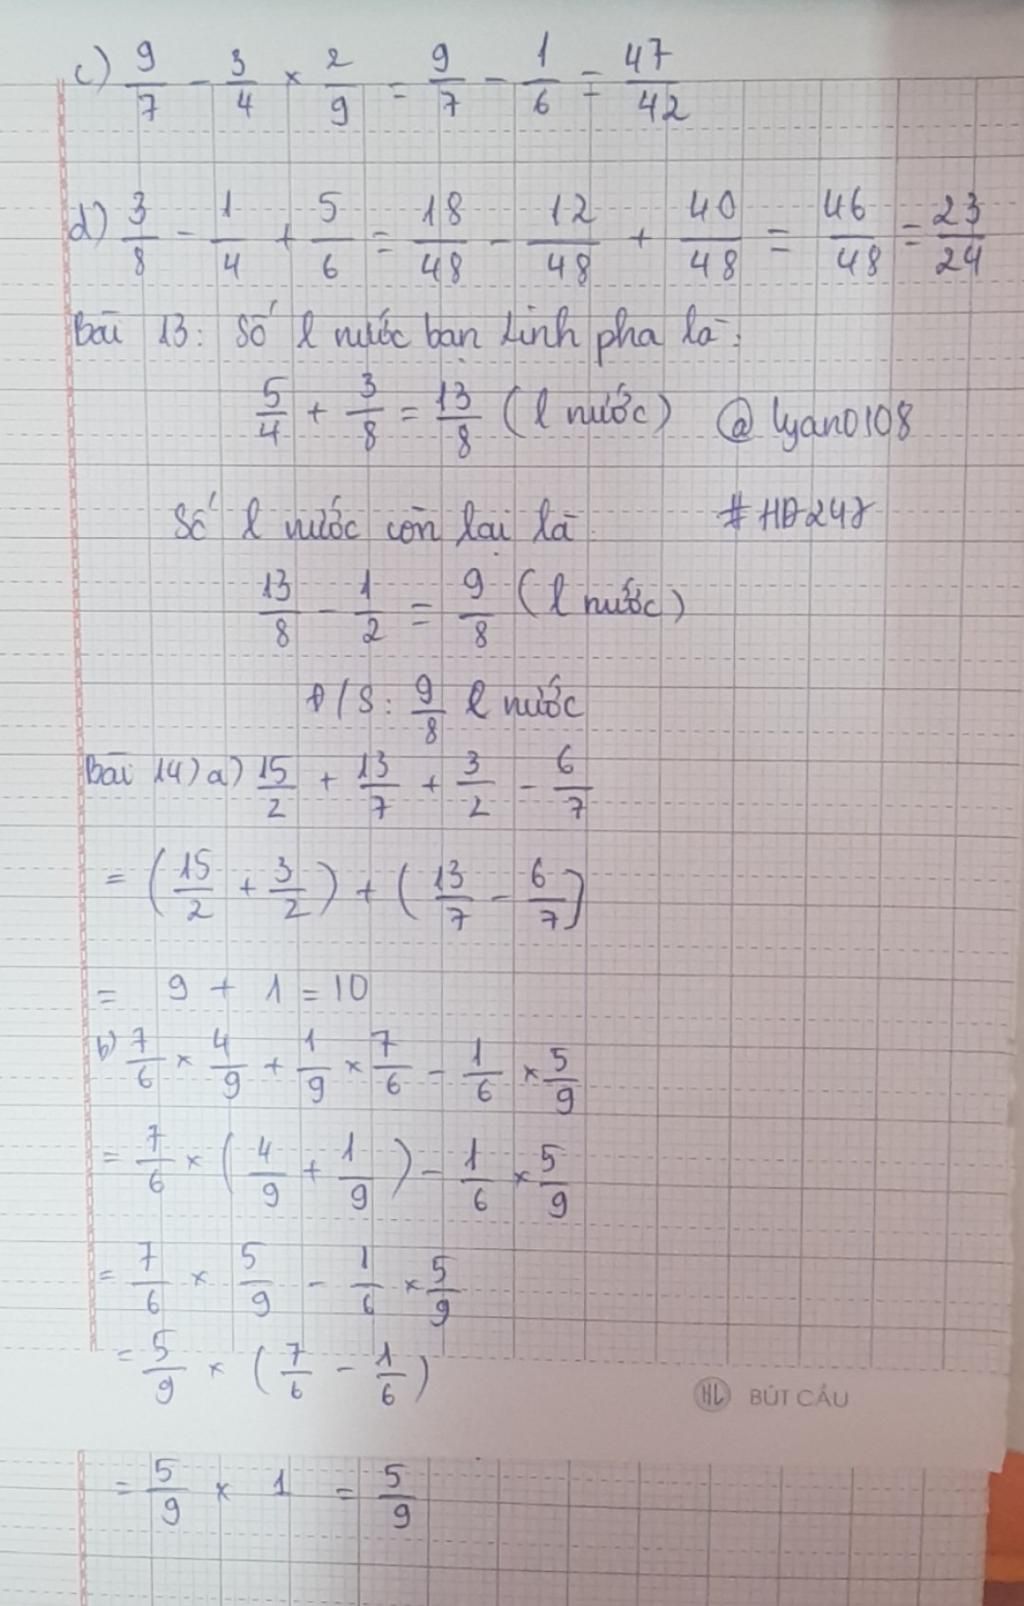 c) 9/7 - 3/4 × 2/9 = 9/7 - 1/6 = 47/42
d) 3/8 - 1/4 + 5/6 = 18/48 - 12/48 + 40/48 = 46/48 = 23/24
Bài 13: Số l nước bạn Linh pha là:
5/4 + 3/8 = 13/8 (l nước) @ lyan0108
Số l nước còn lại là # HD247
13/8 - 1/2 = 9/8 (l nước)
Đ/S: 9/8 l nước
Bài 14) a) 15/2 + 13/7 + 3/2 - 6/7
= (15/2 + 3/2) + (13/7 - 6/7)
= 9 + 1 = 10
b) 7/6 × 4/9 + 1/9 × 7/6 - 1/6 × 5/9
= 7/6 × (4/9 + 1/9) - 1/6 × 5/9
= 7/6 × 5/9 - 1/6 × 5/9
= 5/9 × (7/6 - 1/6)
HL BÚT CẦU
= 5/9 × 1 = 5/9